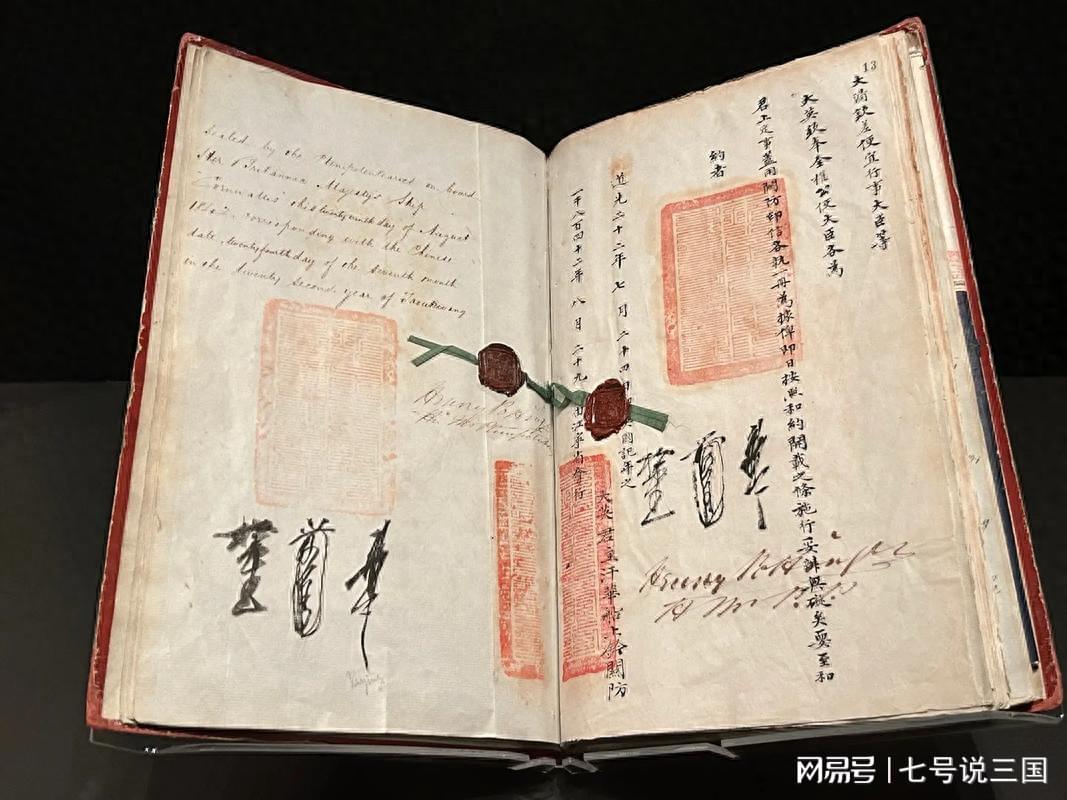 Sealed by the Plenipotentiaries on board
Her Britannic Majesty's Ship
Cornwallis this twenty ninth day of August
1842. corresponding with the Chinese
date, twenty fourth day of the seventh month
in the twenty second year of Taoukwang
13
大清欽差便宜行事大臣等
大英欽奉全權公使大臣各為
君上定事蓋用關防印信各執一冊為據俾即日按照和約開載之條施行妥辦無礙矣要至和
約者
道光二十二年七月二十四日即英國記年之
一千八百四十二年八月二十九日由江寧省會行
大英君主汗華船上鈐關防
Henry Pottinger
网易号 | 七号说三国